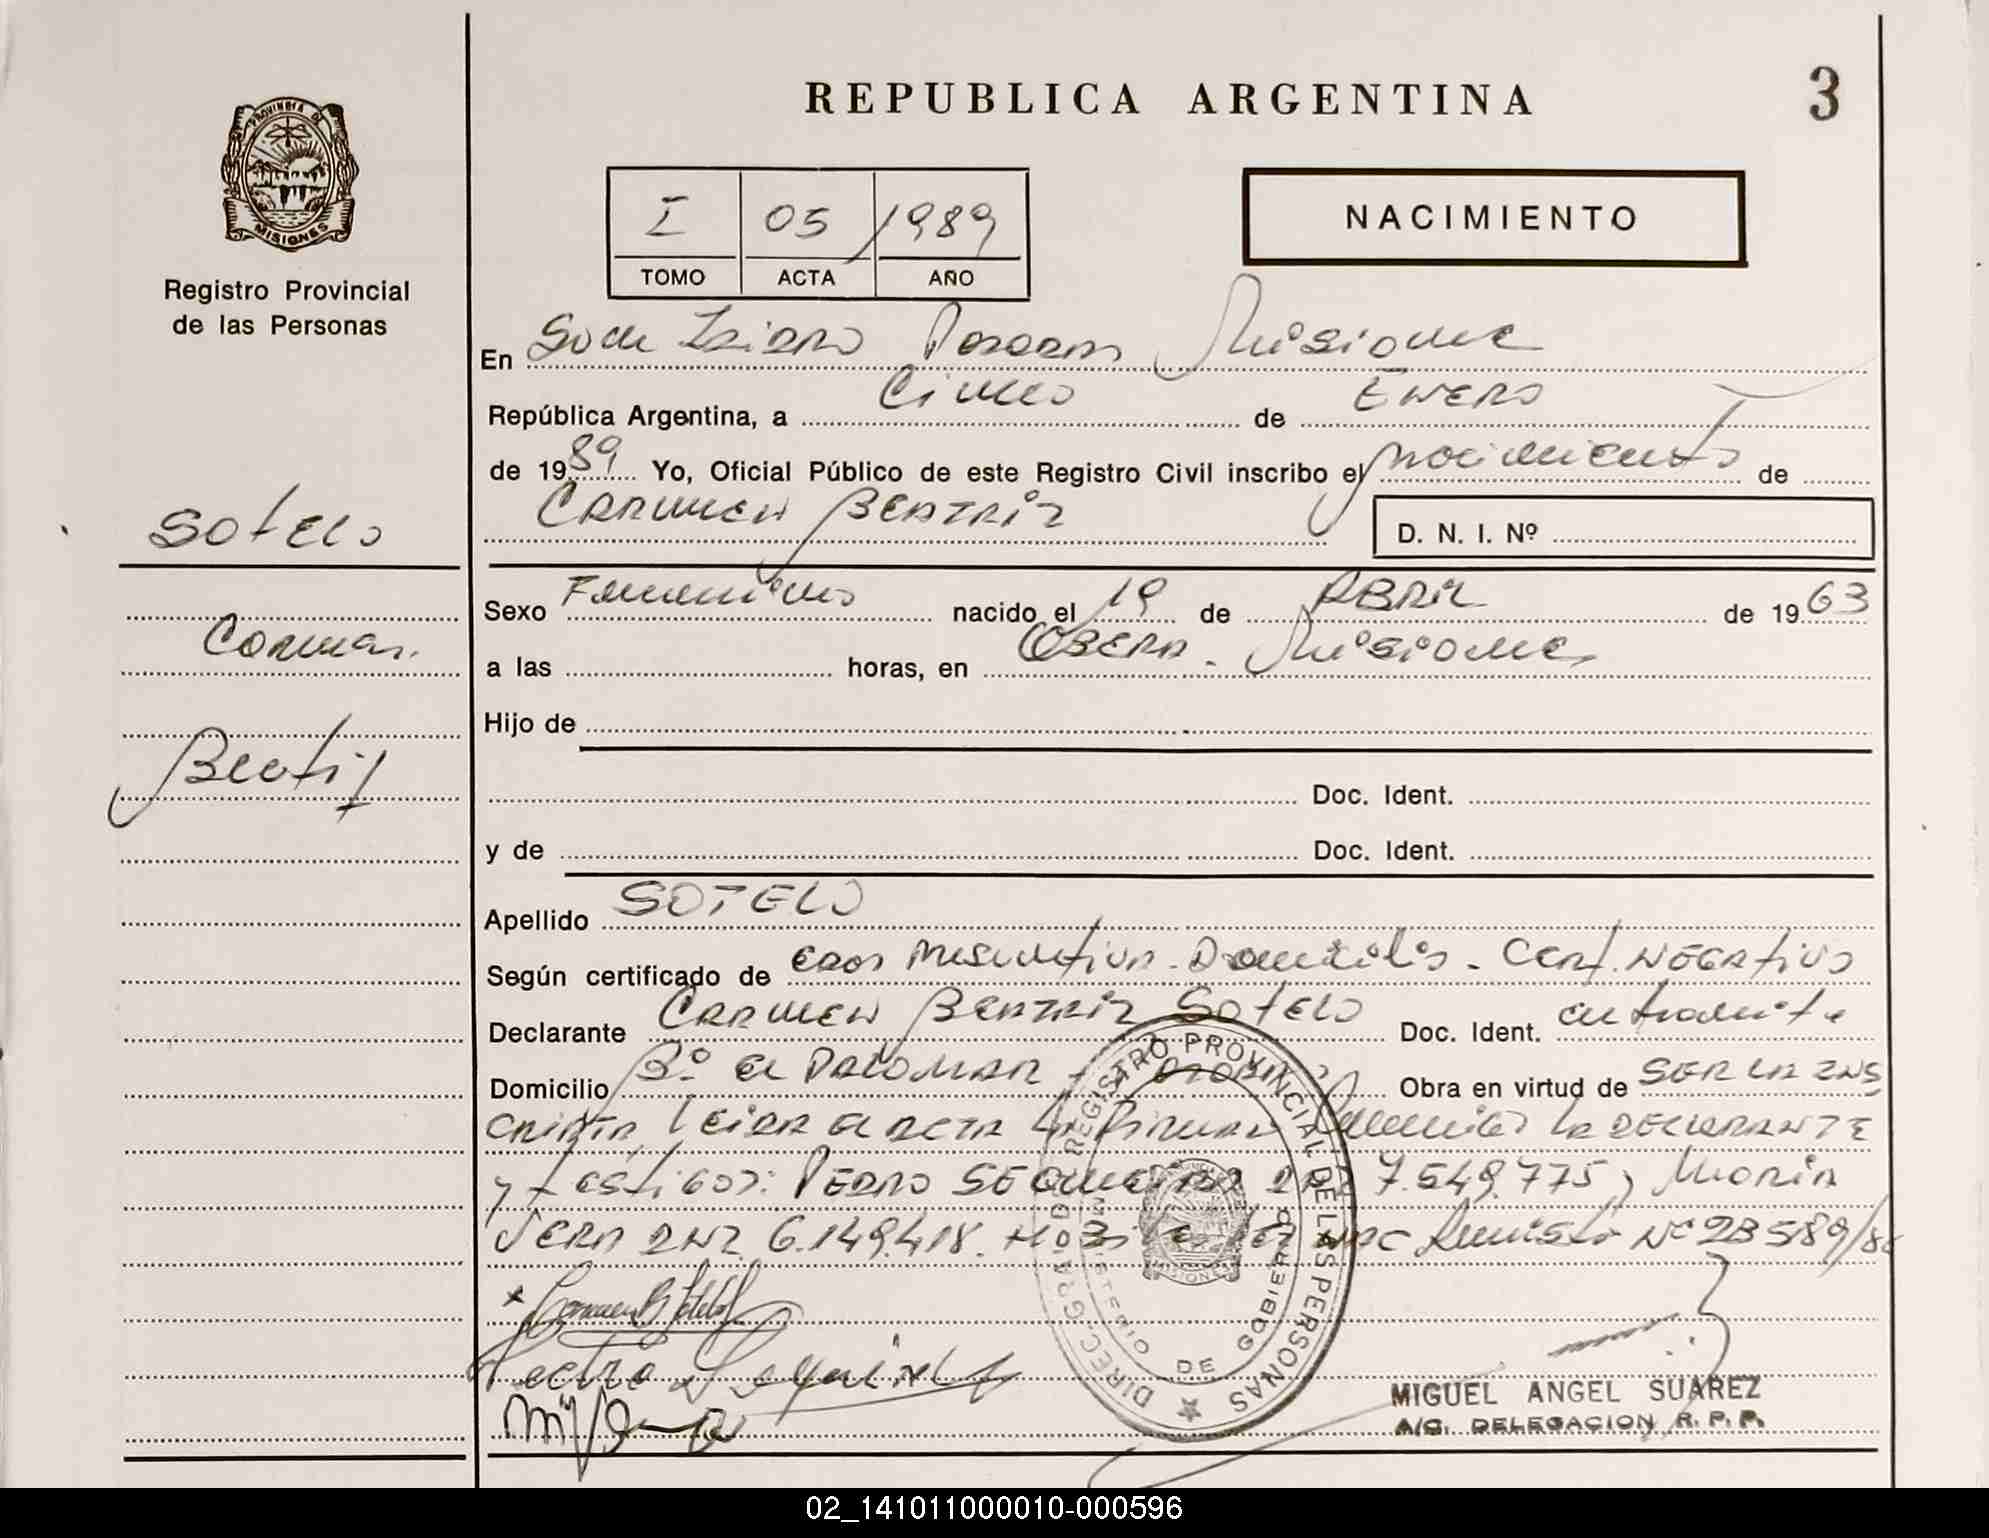 REPUBLICA ARGENTINA
3
PROVINCIA DE
MISIONES
Registro Provincial
de las Personas
I 05 /1989
TOMO ACTA AÑO
NACIMIENTO
En Posadas Misiones
República Argentina, a Cinco de Enero
de 1989 Yo, Oficial Público de este Registro Civil inscribo el nacimiento de
CARMEN BEATRIZ
D. N. I. Nº
SOTELO
Carmen
Beatriz
Sexo Femenino nacido el 19 de ABRIL de 1963
a las horas, en OBERA - Misiones
Hijo de
Doc. Ident.
y de Doc. Ident.
Apellido SOTELO
Según certificado de Domicilio - Cert. NEGATIVO
Declarante CARMEN BEATRIZ SOTELO Doc. Ident. en tramite
Domicilio Bº el PALOMAR Obra en virtud de SER LA INS
CRIPTA, Leida el ACTA la Firman la DECLARANTE
y testigos: PEDRO SEQUEIRA 7.549.775, Maria
VERA DNI. 6.149.418.
REGISTRO PROVINCIAL DE LAS PERSONAS
DIREC. GRAL. DEL
MINISTERIO DE GOBIERNO
MISIONES
MIGUEL ANGEL SUAREZ
A/C. DELEGACION R. P. P.
02_141011000010-000596